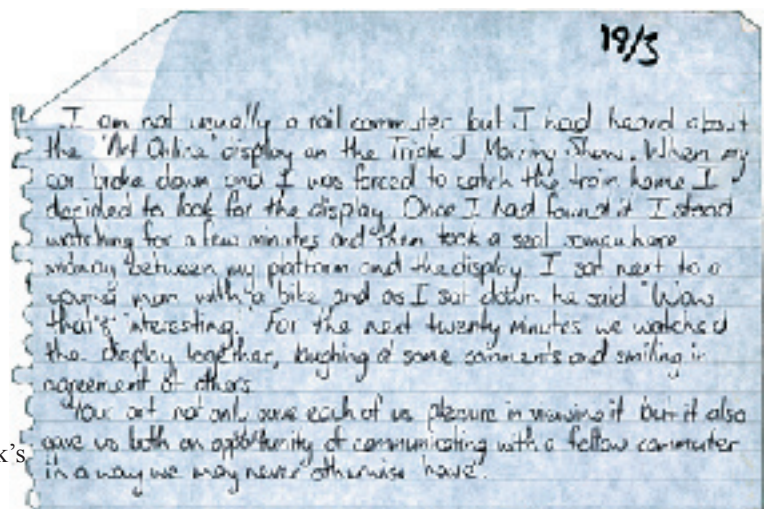 19/5
I am not usually a rail commuter but I had heard about
the 'Art Online' display on the Triple J Morning Show. When my
car broke down and I was forced to catch the train home I
decided to look for the display. Once I had found it I stood
watching for a few minutes and then took a seat somewhere
midway between my platform and the display. I sat next to a
young man with a bike and as I sat down he said "Wow
that's interesting." For the next twenty minutes we watched
the display together, laughing at some comments and smiling in
agreement at others.
Your art not only gave each of us pleasure in viewing it but it also
k's gave us both an opportunity of communicating with a fellow commuter
in a way we may never otherwise have.